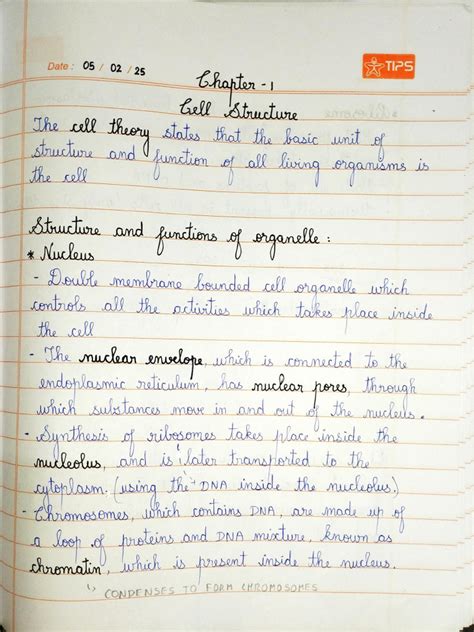 Date: 05 / 02 / 25
TIPS
Chapter - 1
Cell Structure
The cell theory states that the basic unit of
structure and function of all living organisms is
the cell
Structure and functions of organelle :
* Nucleus
- Double membrane bounded cell organelle which
controls all the activities which takes place inside
the cell
- The nuclear envelope, which is connected to the
endoplasmic reticulum, has nuclear pores, through
which substances move in and out of the nucleus.
- Synthesis of ribosomes takes place inside the
nucleolus, and is later transported to the
cytoplasm. (using the DNA inside the nucleolus.)
- Chromosomes, which contains DNA, are made up of
a loop of proteins and DNA mixture, known as
chromatin, which is present inside the nucleus.
↳ CONDENSES TO FORM CHROMOSOMES